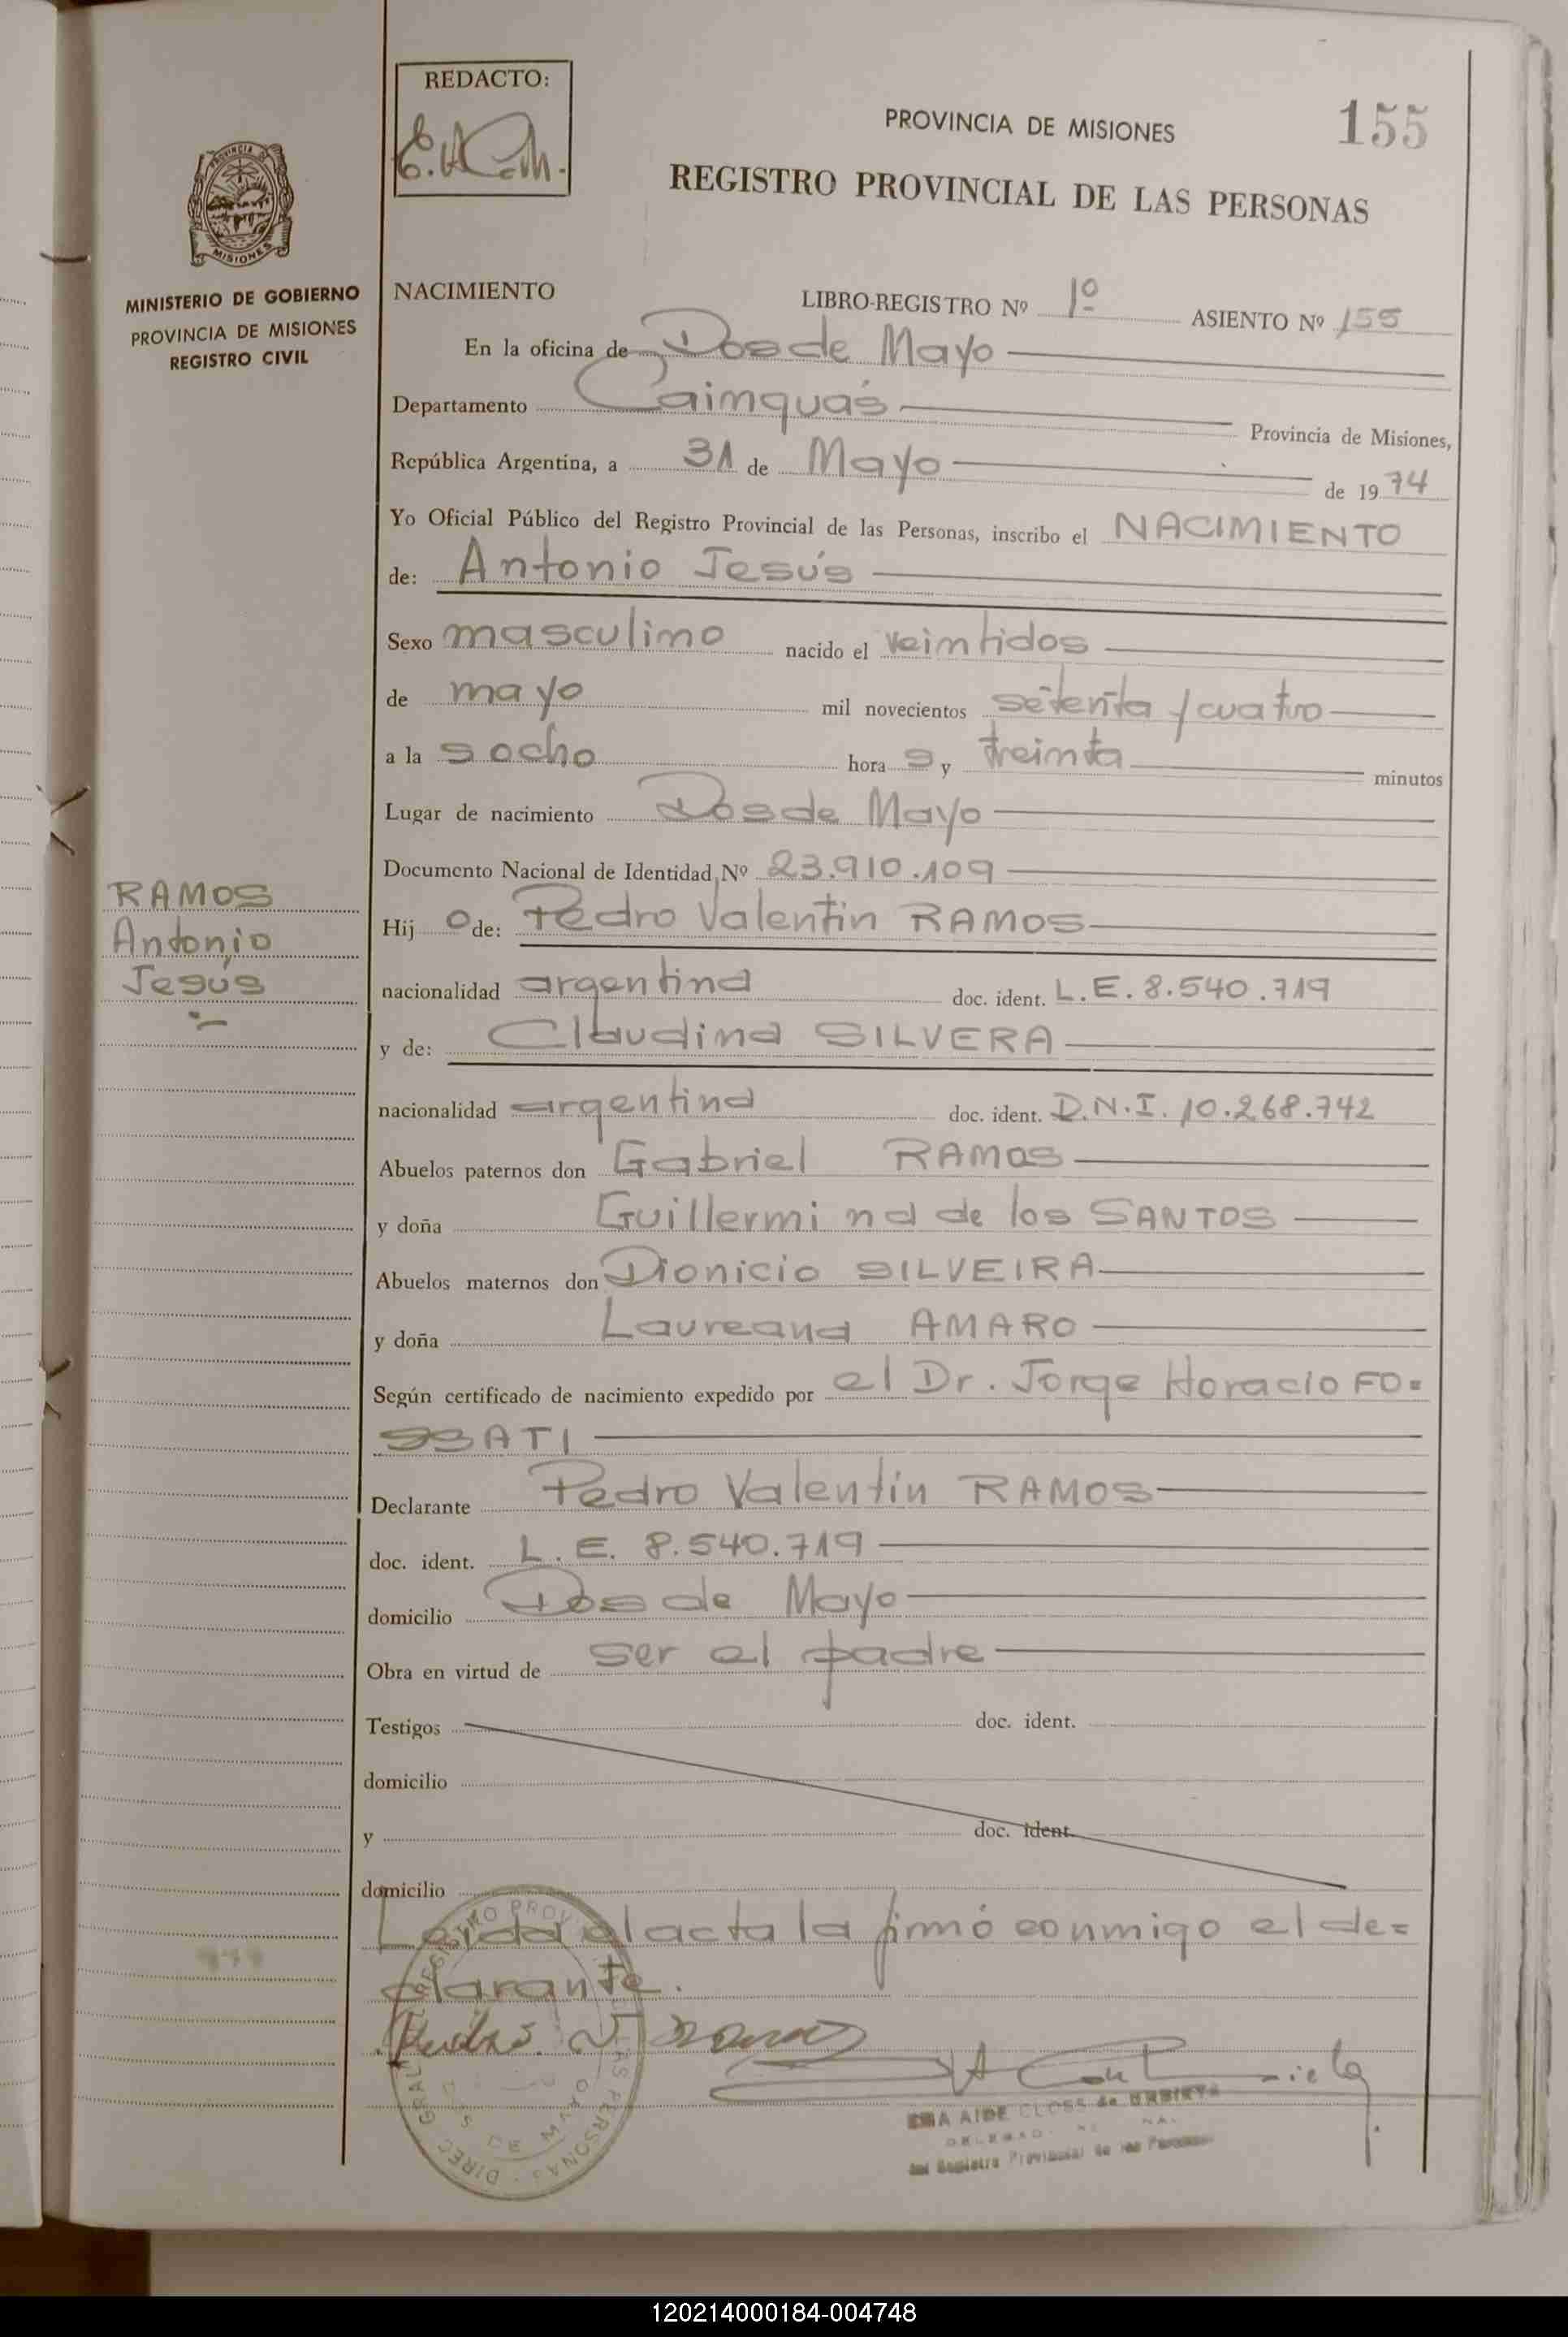 REDACTO:
PROVINCIA DE MISIONES
155
REGISTRO PROVINCIAL DE LAS PERSONAS
PROVINCIA DE
MISIONES
MINISTERIO DE GOBIERNO
PROVINCIA DE MISIONES
REGISTRO CIVIL
NACIMIENTO LIBRO-REGISTRO Nº 1º ASIENTO Nº 155
En la oficina de Dos de Mayo
Departamento Cainguás Provincia de Misiones,
República Argentina, a 31 de Mayo de 1974
Yo Oficial Público del Registro Provincial de las Personas, inscribo el NACIMIENTO
de: Antonio Jesús
Sexo masculino nacido el veintidos
de mayo mil novecientos setenta y cuatro
a la s ocho hora s y treinta minutos
Lugar de nacimiento Dos de Mayo
Documento Nacional de Identidad, Nº 23.910.109
RAMOS
Antonio
Jesús
Hij o de: Pedro Valentín RAMOS
nacionalidad argentina doc. ident. L.E. 8.540.719
y de: Claudina SILVERA
nacionalidad argentina doc. ident. D.N.I. 10.268.742
Abuelos paternos don Gabriel RAMOS
y doña Guillermina de los SANTOS
Abuelos maternos don Dionicio SILVEIRA
y doña Laureana AMARO
Según certificado de nacimiento expedido por el Dr. Jorge Horacio FO=
SSATI
Declarante Pedro Valentín RAMOS
doc. ident. L.E. 8.540.719
domicilio Dos de Mayo
Obra en virtud de ser el padre
Testigos doc. ident.
domicilio
y doc. ident.
domicilio
Leida el acta la firmó conmigo el de=
clarante.
Pedro V Ramos
AIDE CLOSS de URBIETA
del Registro Provincial de las Personas
DOS DE MAYO
120214000184-004748